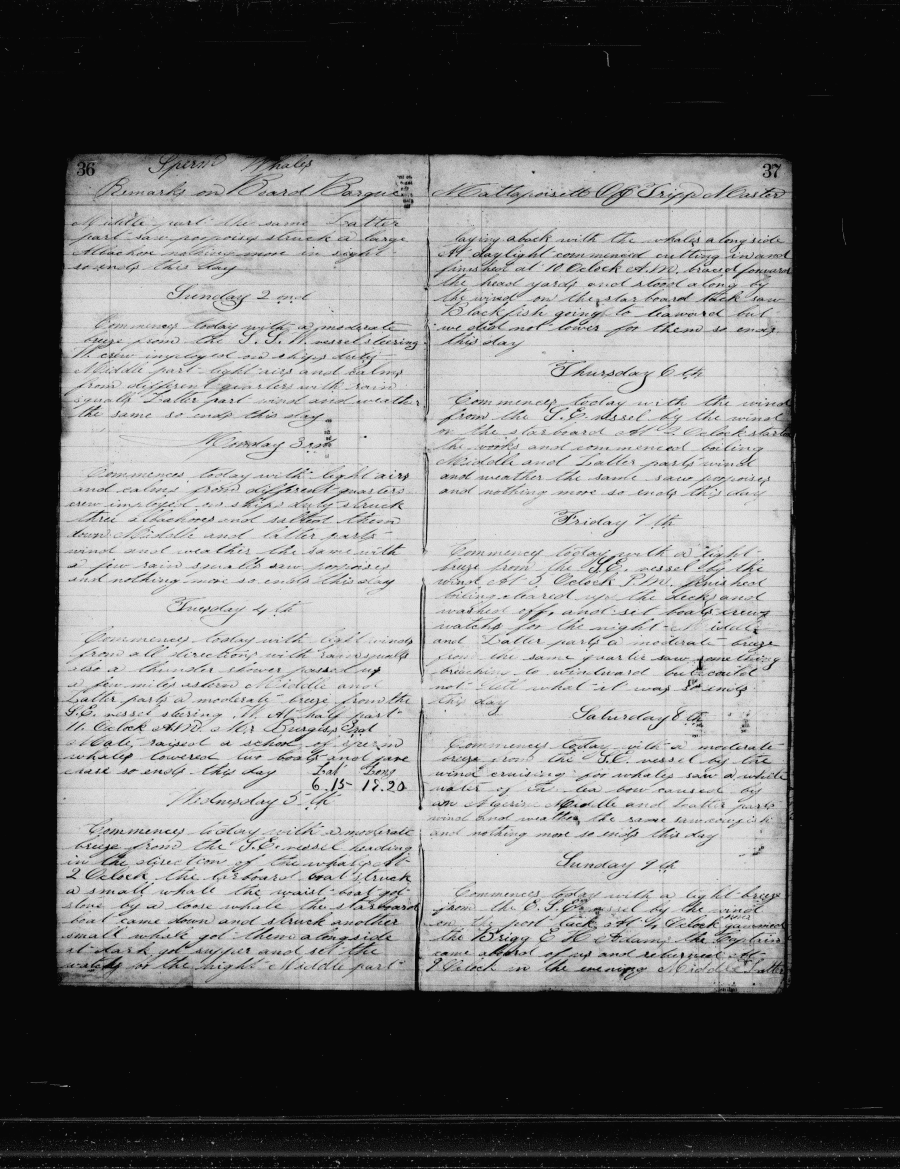 36
Sperm Whales
Remarks on Board Barque
Middle part the same Latter
part saw porpoises struck a large
Albachore nothing more in sight
so ends this day
Sunday 2 ond
Commences today with a moderate
breze from the S.S.W. vessel steering
W. crew imployed on ships duty
Middle part light airs and calms
from different quarters with rain
squalls Latter part wind and weather
the same so ends this day
Monday 3 rd
Commences today with light airs
and calms from different quarters
crew imployed on ships duty struck
three albachores and salted them
down Middle and latter parts
wind and weather the same with
a few rain squalls saw porpoises
and nothing more so ends this day
Tuesday 4 th
Commences today with light winds
from all directions with rain squalls
also a thunder shower passed up
a few miles astern Middle and
Latter parts a moderate breze from the
S.E. vessel steering W. At half past
11. Oclock A.M. Mr Burgess 3rd
Mate raised a school of sperm
whales lowered two boats and gave
chase so ends this day Lat Long
6.15 - 18.20
Wednesday 5 th
Commences today with a moderate
breze from the S.E. vessel heading
in the direction of the whales At
2 Oclock the larboard boat struck
a small whale the waist boat got
stove by a loose whale the starboard
boat came down and struck another
small whale got them alongside
at dark got supper and set the
watches for the night Middle part
37
Mattapoisett Off Tripp Master
laying aback with the whales alongside
At daylight commenced cutting in and
finished at 10 Oclock A.M. braced forward
the head yards and stood along by
the wind on the starboard tack saw
Blackfish going to leaward but
we did not lower for them so ends
this day
Thursday 6 th
Commences today with the wind
from the S.E. vessel by the wind
on the starboard At 2 Oclock started
the works and commenced boiling
Middle and Latter parts wind
and weather the same saw porpoises
and nothing more so ends this day
Friday 7 th
Commences today with a light
breze from the S.E. vessel by the
wind At 5 Oclock P.M. finished
boiling cleared up the deck and
washed off, and set boats crews
watches for the night Middle
and Latter parts a moderate breze
from the same quarter saw something
breaching to windward but could
not tell what it was so ends
this day
Saturday 8 th
Commences today with a moderate
breze from the S.E. vessel by the
wind cruising for whales saw a white
water off the lea bow caused by
an Algerine Middle and Latter parts
wind and weather the same saw cowfish
and nothing more so ends this day
Sunday 9 th
Commences today with a light breze
from the E.S.E. vessel by the wind
on the port tack At 4 Oclock gammed
the Brigg E H Adams the Captain
came aboard of us and returned at
9 Oclock in the evening Middle Latter